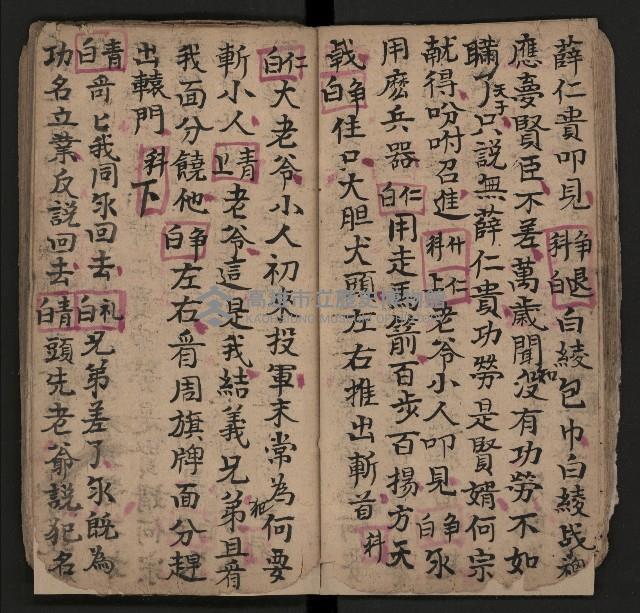 薛仁貴叩見 争退科白 白綾包巾白綾战
應夢賢臣不差萬歲聞知没有功勞不如
瞞了天子只説無薛仁貴功勞是賢婿何宗
献得吩咐召進 科 仁上 老爷小人叩見 争白
用麽兵器 仁白 用走馬箭百步百揚方天
戟 争白 住口大胆犬頭左右推出斬首 科
仁白 大老爷小人初来投軍未常為何要
斬小人 青上 老爷這是我結義兄弟且看
我面分饒他 争白 左右看周旗牌面分趕
出轅門 科下
青白 哥匕我同你回去 礼白 兄弟差了你既為
功名立業反説回去 青白 頭先老爺説犯名
高雄市立歷史博物館
KAOHSIUNG MUSEUM OF HISTORY